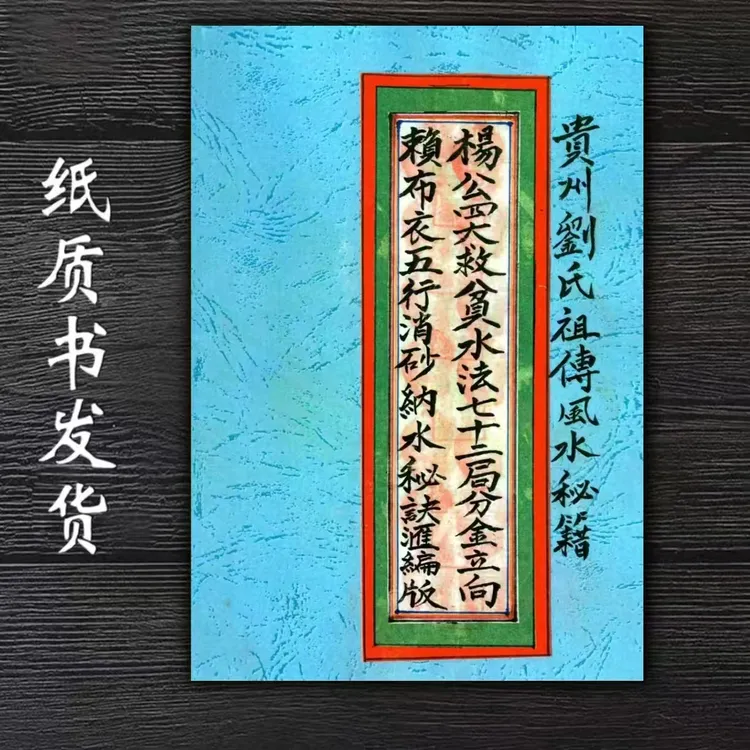 貴州劉氏祖傳風水秘籍
楊公四大救貧水法七十二局分金立向
賴布衣五行消砂納水秘訣滙編版
纸质书发货